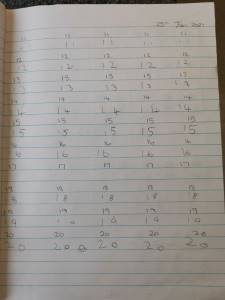 25th Jan 2021
11 11 11 11 11
11 11 11 11
12 12 12 12 12
12 12 12 12 12
13 13 13 13 13
13 13 13 13 13
14 14 14 14 14
14 14 14 14 14
15 15 15 15 15
15 15 15 15 15
16 16 16 16
16 16 16 16 16
17 17 17 17 17
18 18 18 18 18
18 18 18 18
19 19 19 19 19
19 19 19 19 19
20 20 20 20 20
20 20 20 20 20